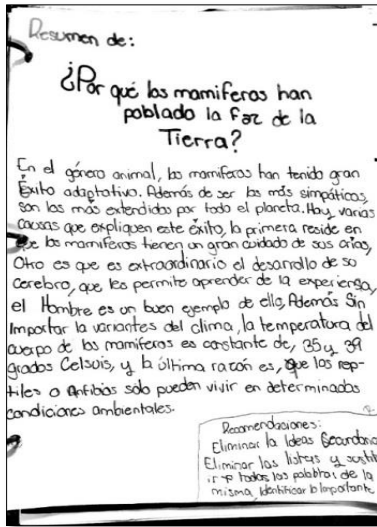 Resumen de:
¿Por qué los mamiferos han
poblado la Faz de la
Tierra?
En el género animal, los mamiferos han tenido gran
Éxito adaptativo. Además de ser los más simpáticos,
son los más extendidos por todo el planeta. Hay varias
causas que expliquen este éxito, la primera reside en
que los mamiferos tienen un gran cuidado de sus crías,
Otro es que es extraordinario el desarrollo de so
Cerebro, que les permite aprender de la experiensa,
el Hombre es un buen ejemplo de ello, Además Sin
Importar la variantes del clima, la temperatura del
cuerpo de los mamiferos es constante de, 35 y 39
grados Celsuis, y la última razón es, Que los rep-
tiles o Anfibios solo pueden vivir en determinadas
condiciones ambientales.
Recomendaciones:
Eliminar la Ideas Secundaria
Eliminar las listas y sustit
ir todas las palabras de la
misma, Identificar lo Importante